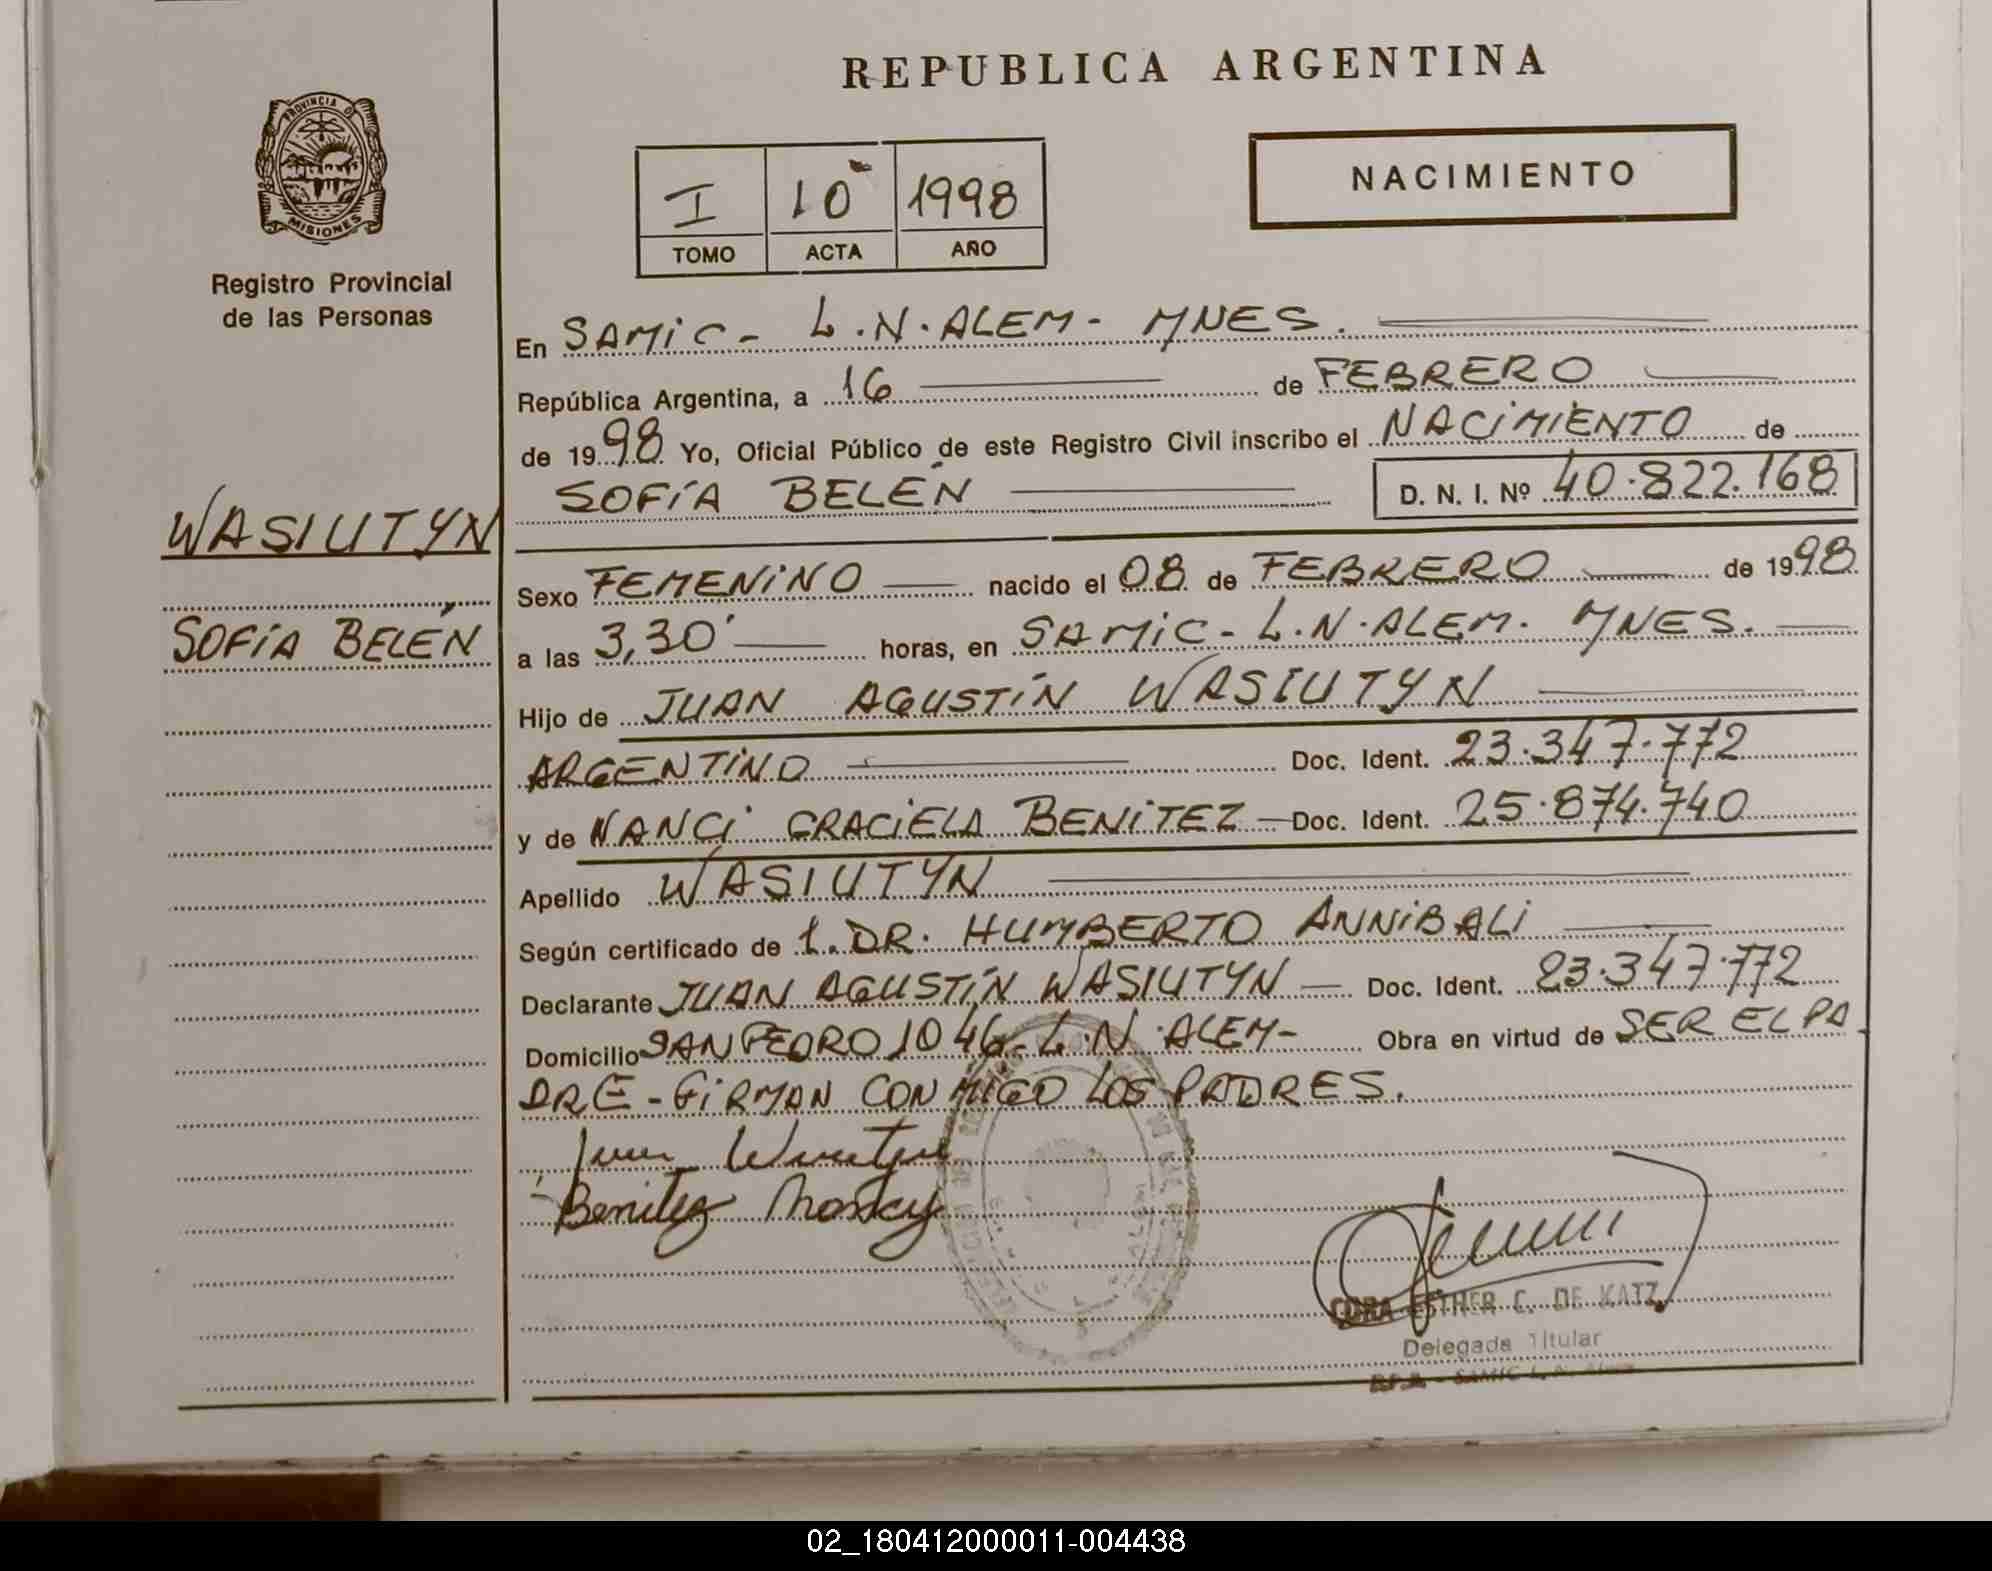 REPUBLICA ARGENTINA
PROVINCIA DE
MISIONES
Registro Provincial
de las Personas
I 10 1998
TOMO ACTA AÑO
NACIMIENTO
En SAMIC - L.N. ALEM - MNES.
República Argentina, a 16 de FEBRERO
de 1998 Yo, Oficial Público de este Registro Civil inscribo el NACIMIENTO de
SOFÍA BELÉN D. N. I. Nº 40.822.168
WASIUTYN
SOFÍA BELÉN
Sexo FEMENINO nacido el 08 de FEBRERO de 1998
a las 3,30' horas, en SAMIC - L.N. ALEM. MNES.
Hijo de JUAN AGUSTÍN WASIUTYN
ARGENTINO Doc. Ident. 23.347.772
y de NANCI GRACIELA BENITEZ Doc. Ident. 25.874.740
Apellido WASIUTYN
Según certificado de 1. DR. HUMBERTO ANNIBALI
Declarante JUAN AGUSTÍN WASIUTYN Doc. Ident. 23.347.772
Domicilio SAN PEDRO 1046 - L.N. ALEM - Obra en virtud de SER EL PA
DRE - FIRMAN CONMIGO LOS PADRES.
Juan
Benitez
CORA ESTHER C. DE KATZ
Delegada Titular
SAMIC L. N. Alem
02_180412000011-004438